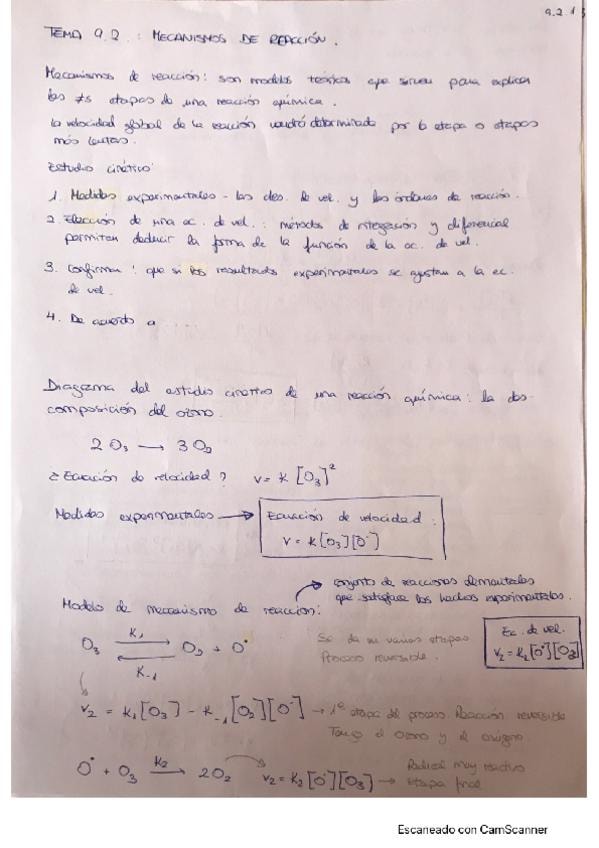 9.2 1
TEMA 9.2 : MECANISMOS DE REACCIÓN.
Mecanismos de reacción: son modelos teóricos que sirven para explicar
las ≠s etapas de una reacción química.
la velocidad global de la reacción vendrá determinada por la etapa o etapas
más lentas.
Estudio cinético:
1. Medidas experimentales - las des. de vel. y los órdenes de reacción.
2. Elección de una ec. de vel. : métodos de integración y diferencial
permiten deducir la forma de la función de la ec. de vel.
3. Confirmar : que si los resultados experimentales se ajustan a la ec.
de vel.
4. De acuerdo a
Diagrama del estudio cinético de una reacción química: la des-
composición del ozono.
2 O₃ → 3 O₂
¿Ecuación de velocidad? v = k [O₃]²
Medidas experimentales → Ecuación de velocidad :
v = k[O₃][O·]
conjunto de reacciones elementales
que satisface los hechos experimentales.
Modelo de mecanismo de reacción:
O₃ ⇌ O₂ + O·
K₁
K₋₁
Se da en varias etapas
Proceso reversible.
Ec. de vel.
v₂ = k₂[O·][O₃]
v₂ = k₁[O₃] - k₋₁[O₂][O·] → 1ª etapa del proceso. Reacción reversible
Tengo el ozono y el oxígeno.
O· + O₃ →K₂ 2O₂ v₂ = k₂[O·][O₃] → Radical muy reactivo
etapa final
Escaneado con CamScanner